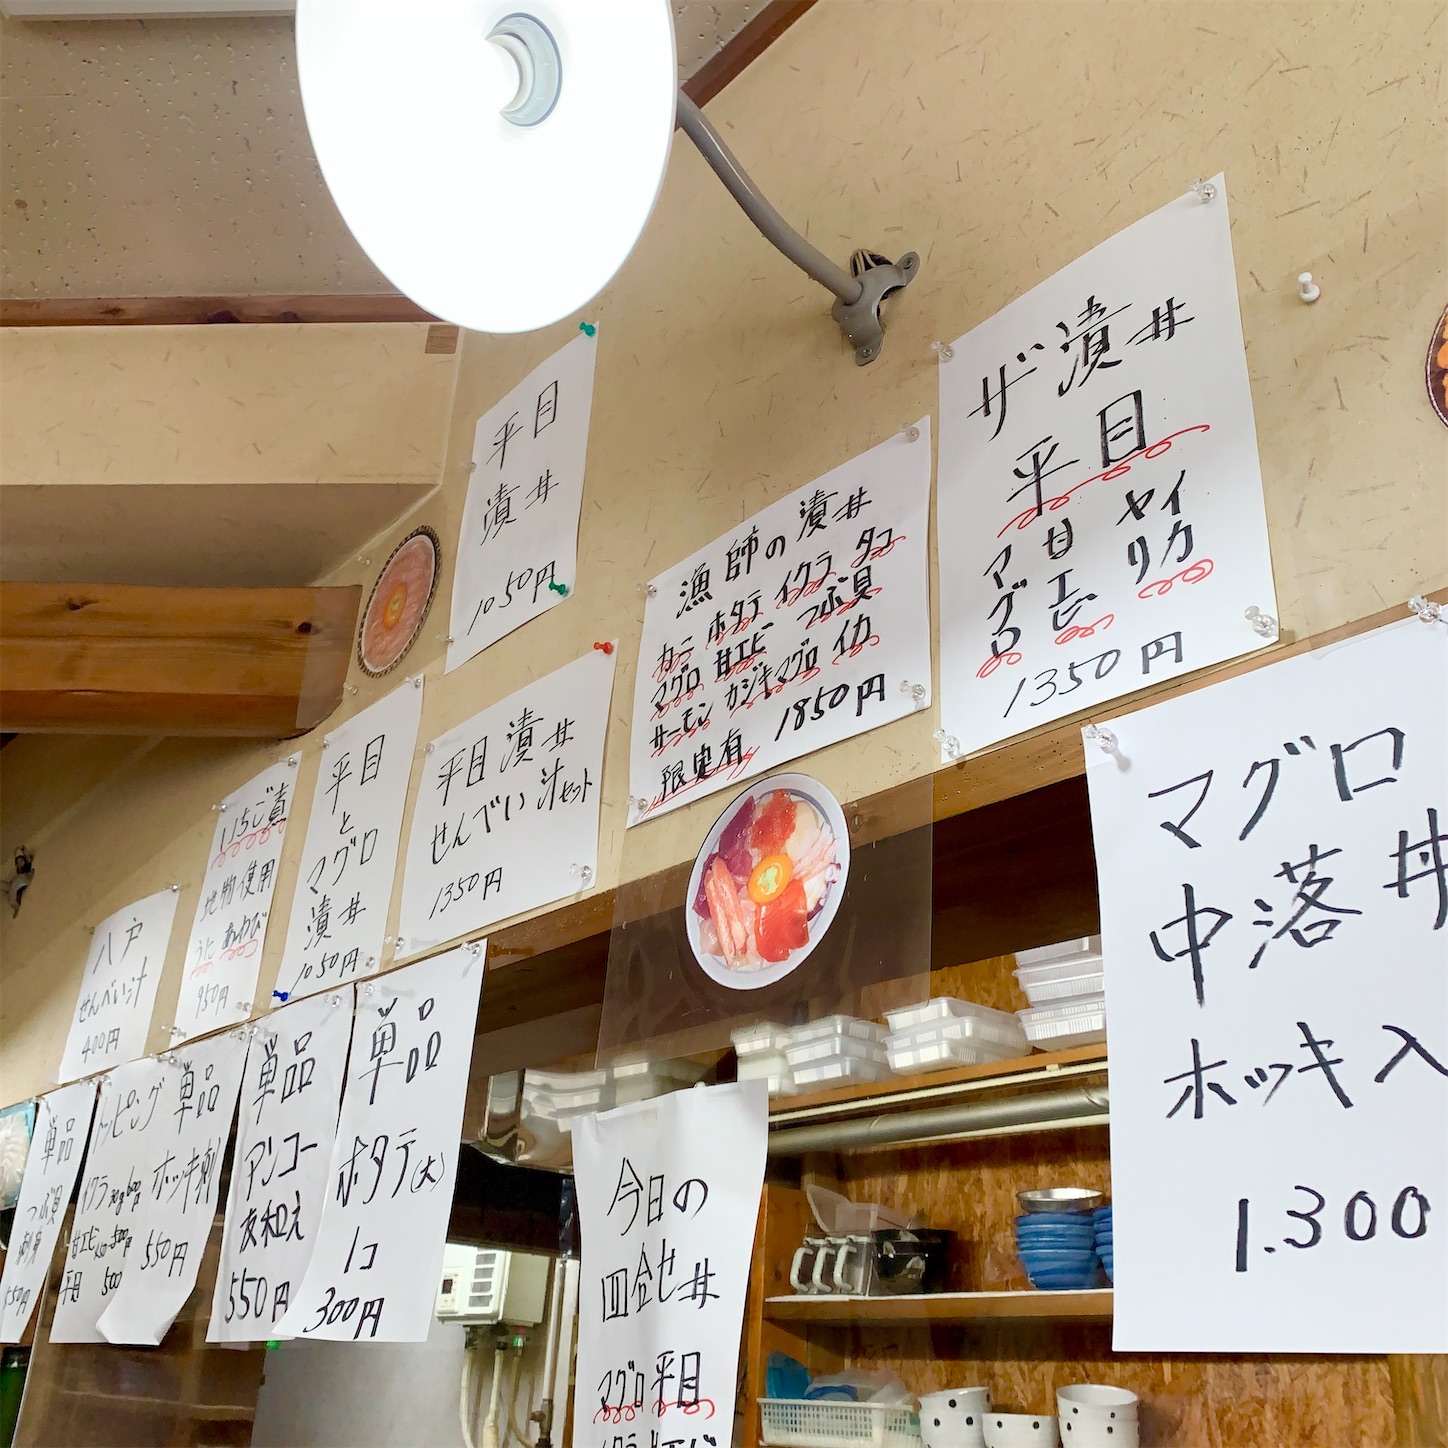 平目
漬丼
1050円
漁師の漬丼
カニ ホタテ イクラ タコ
マグロ 甘エビ つぶ貝
サーモン カジキマグロ イカ
限定有 1850円
ザ漬丼
平目
マグロ 甘エビ ヤリイカ
1350円
マグロ
中落丼
ホッキ入
1.300
平目漬丼
せんべい汁セット
1350円
平目
と
マグロ
漬丼
1050円
いちご煮
地物使用
うに あわび
950円
八戸
せんべい汁
400円
単品
つぶ貝
刺身
トッピング
イクラ
甘エビ
平目 500
単品
ホッキ刺
550円
単品
アンコー
友和え
550円
単品
ホタテ(大)
1コ
300円
今日の
四合せ丼
マグロ 平目